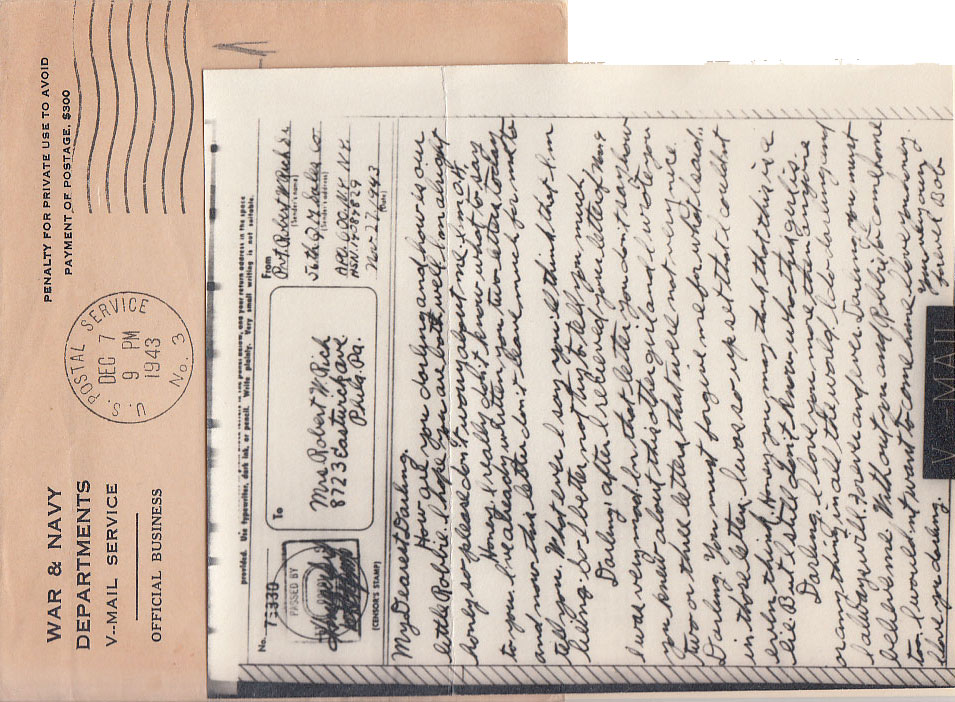 WAR & NAVY
DEPARTMENTS
V--MAIL SERVICE
OFFICIAL BUSINESS
U. S. POSTAL SERVICE
DEC 7
9 PM
1943
No. 3
PENALTY FOR PRIVATE USE TO AVOID
PAYMENT OF POSTAGE, $300
provided. Use typewriter, dark ink, or pencil. Write plainly. Very small writing is not suitable.
No. 75330
PASSED BY
(CENSOR'S STAMP)
To
Mrs Robert W. Rich
8723 Eastwick ave
Phila, Pa.
From
Pvt. Robert W. Rich
(Sender's name)
(Sender's address)
APO
Nov-27-1943
(Date)
My Dearest Darling.
How are you darling and how is our
little Robbie. I hope you are both well. I'm alright
honey so please don't worry about me.
Honey, I really don't know what to say
to you. I've already written you two letters today
and now this letter don't leave much for me to
tell you. What ever I say you'll think that I'm
lieing. So I better not try to tell you much.
Darling, after I recieved your letter of Nov 8
I was very mad. In that letter you don't say how
you knew about this other girl and I wrote you
two or three letters that are not very nice.
Darling. You must forgive me for what I said.
in those letters. I was so up set that I couldn't
even think. Honey you may think that this is a
lie. But I still don't know who that girl is.
Darling, I love you more then anyone
or anything in all the world. I do darling and
always will. Forever and ever Darling, you must
believe me. Without you and Robbie to come home
too. I would not want to come home. I love you honey.
I love you darling
Your loving
Bob
V-MAIL